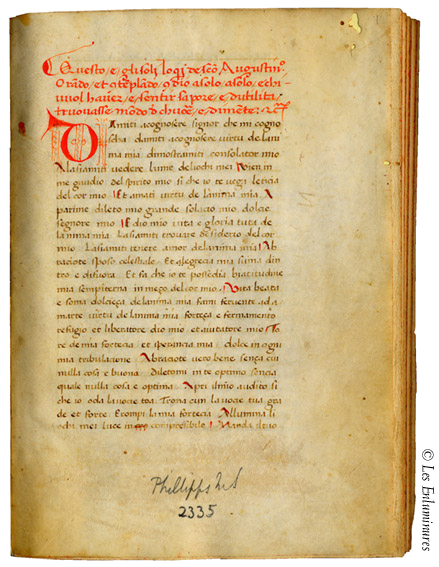 Questo e gli soli loqi de scō Augustino
Orādo et cōteplādo 9 dio a solo a solo e chi
vuol haver e sentir sapore e dutilita
truovasse
Damiti a cognoscere signor che mi cogno
scha damiti a cognoscere virtu de lani
ma mia dimostramiti consolator mio
A lasiamiti vedere lume de li ochi mei
me gaudio del spirito mio si che io te vegi leticia
del cor mio Et amati virtu de lanima mia A
partine dileto mio grande solacio mio dolce
segnore mio Et dio mio vita e gloria tuta de
lanima mia lasiamiti trovare desiderio del cor
mio lasiamiti tenere amor de lanima mia Ab
braciote sposo celestiale Et alegrecia mia suma din
tro e di fuora Et fa che io te possedia biatitudine
mia sempiterna in meço del cor mio Vita beata
e soma dolcieça de lanima mia fami fervente ad a
marte virtu de lanima mia forteça e fermamento
refugio et liberatore dio mio et aiutatore mio To
re de mia fortecia et sperancia mia dolce in ogni
mia tribulacione Abraciote vero bene sença cui
nulla cosa e buona Diletomi in te optimo sencia
quale nulla cosa e optima Apri audito si
che io oda la vocie toa Trona cun la vocie tua gra
de et forte Et rompi la mia fortecia Allumina li
ochi mei luce in compresibile Manda
Phillipps MS
2335
© Les Enluminures